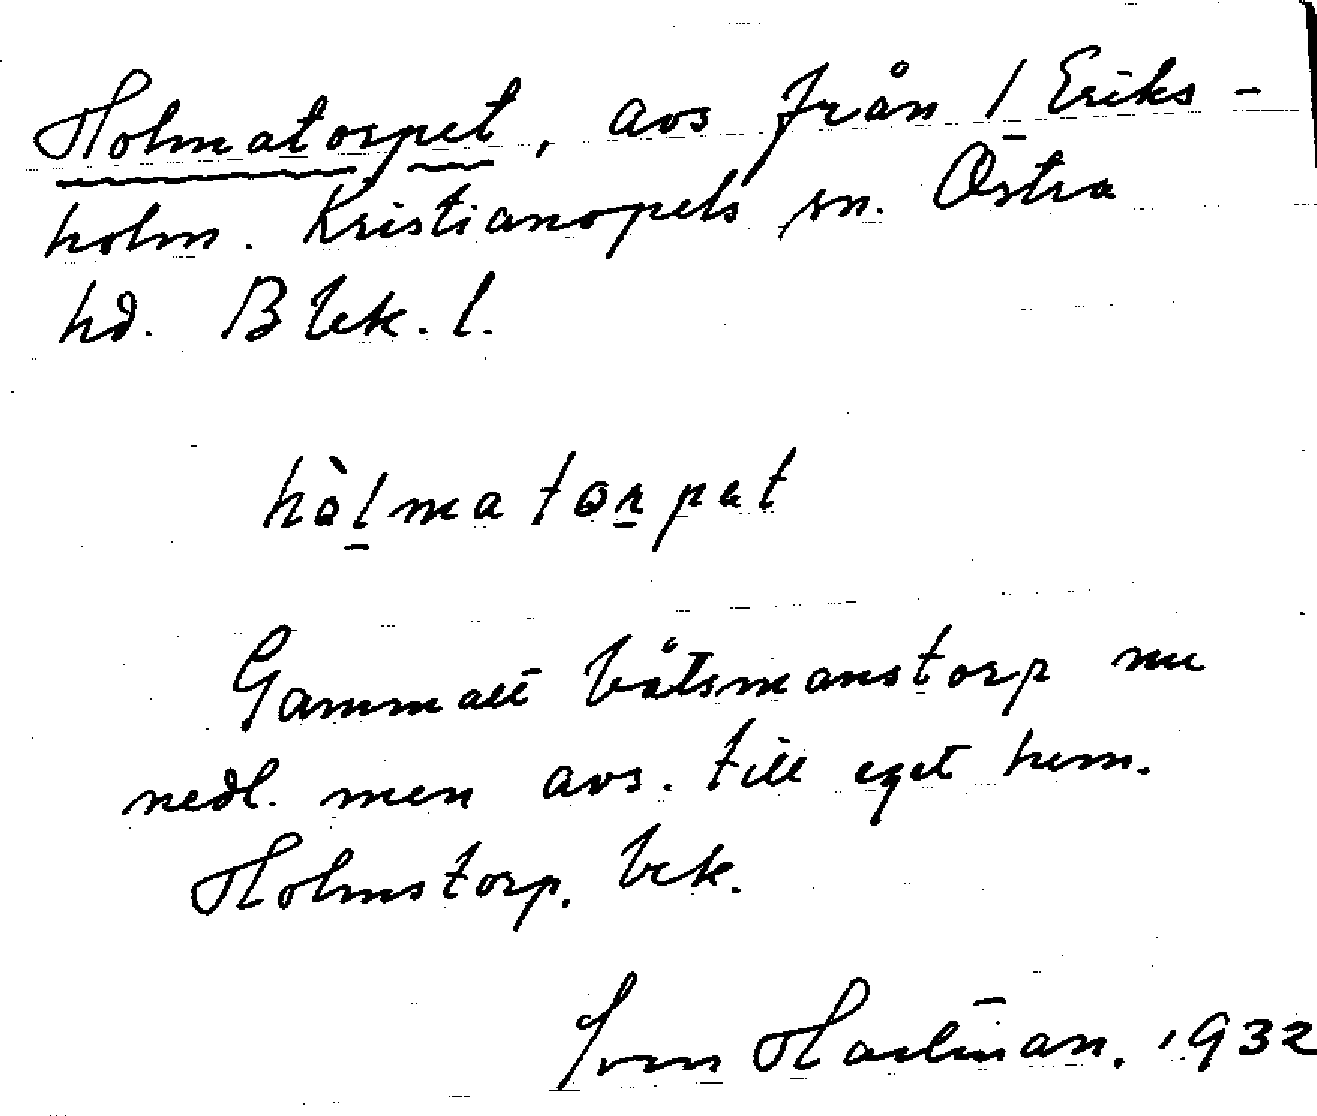 Holmatorpet, avs från 1 Eriks-
holm. Kristianopels sn. Östra
hd. Blek. l.
hòlmatorpet
Gammalt båtsmanstorp nu
nedl. men avs. till eget hem.
Holmstorp. bek.
Hartman. 1932